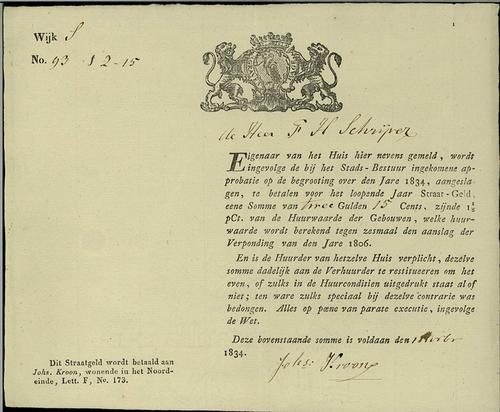 Wijk S
No. 93 f 2-15
de Heer F H Schrijver
Eigenaar van het Huis hier nevens gemeld, wordt
ingevolge de bij het Stads-Bestuur ingekomene ap-
probatie op de begrooting over den Jare 1834, aangesla-
gen, te betalen voor het loopende Jaar Straat-Geld,
eene Somme van twee Gulden 15 Cents, zijnde 1½
pCt. van de Huurwaarde der Gebouwen, welke huur-
waarde wordt berekend tegen zesmaal den aanslag der
Verponding van den Jare 1806.
En is de Huurder van hetzelve Huis verplicht, dezelve
somme dadelijk aan de Verhuurder te restitueeren om het
even, of zulks in de Huurconditien uitgedrukt staat al of
niet; ten ware zulks speciaal bij dezelve contrarie was
bedongen. Alles op pœne van parate executie, ingevolge
de Wet.
Deze bovenstaande somme is voldaan den
1834.
Johs: Kroon
Dit Straatgeld wordt betaald aan
Johs. Kroon, wonende in het Noord-
einde, Lett. F, No. 173.